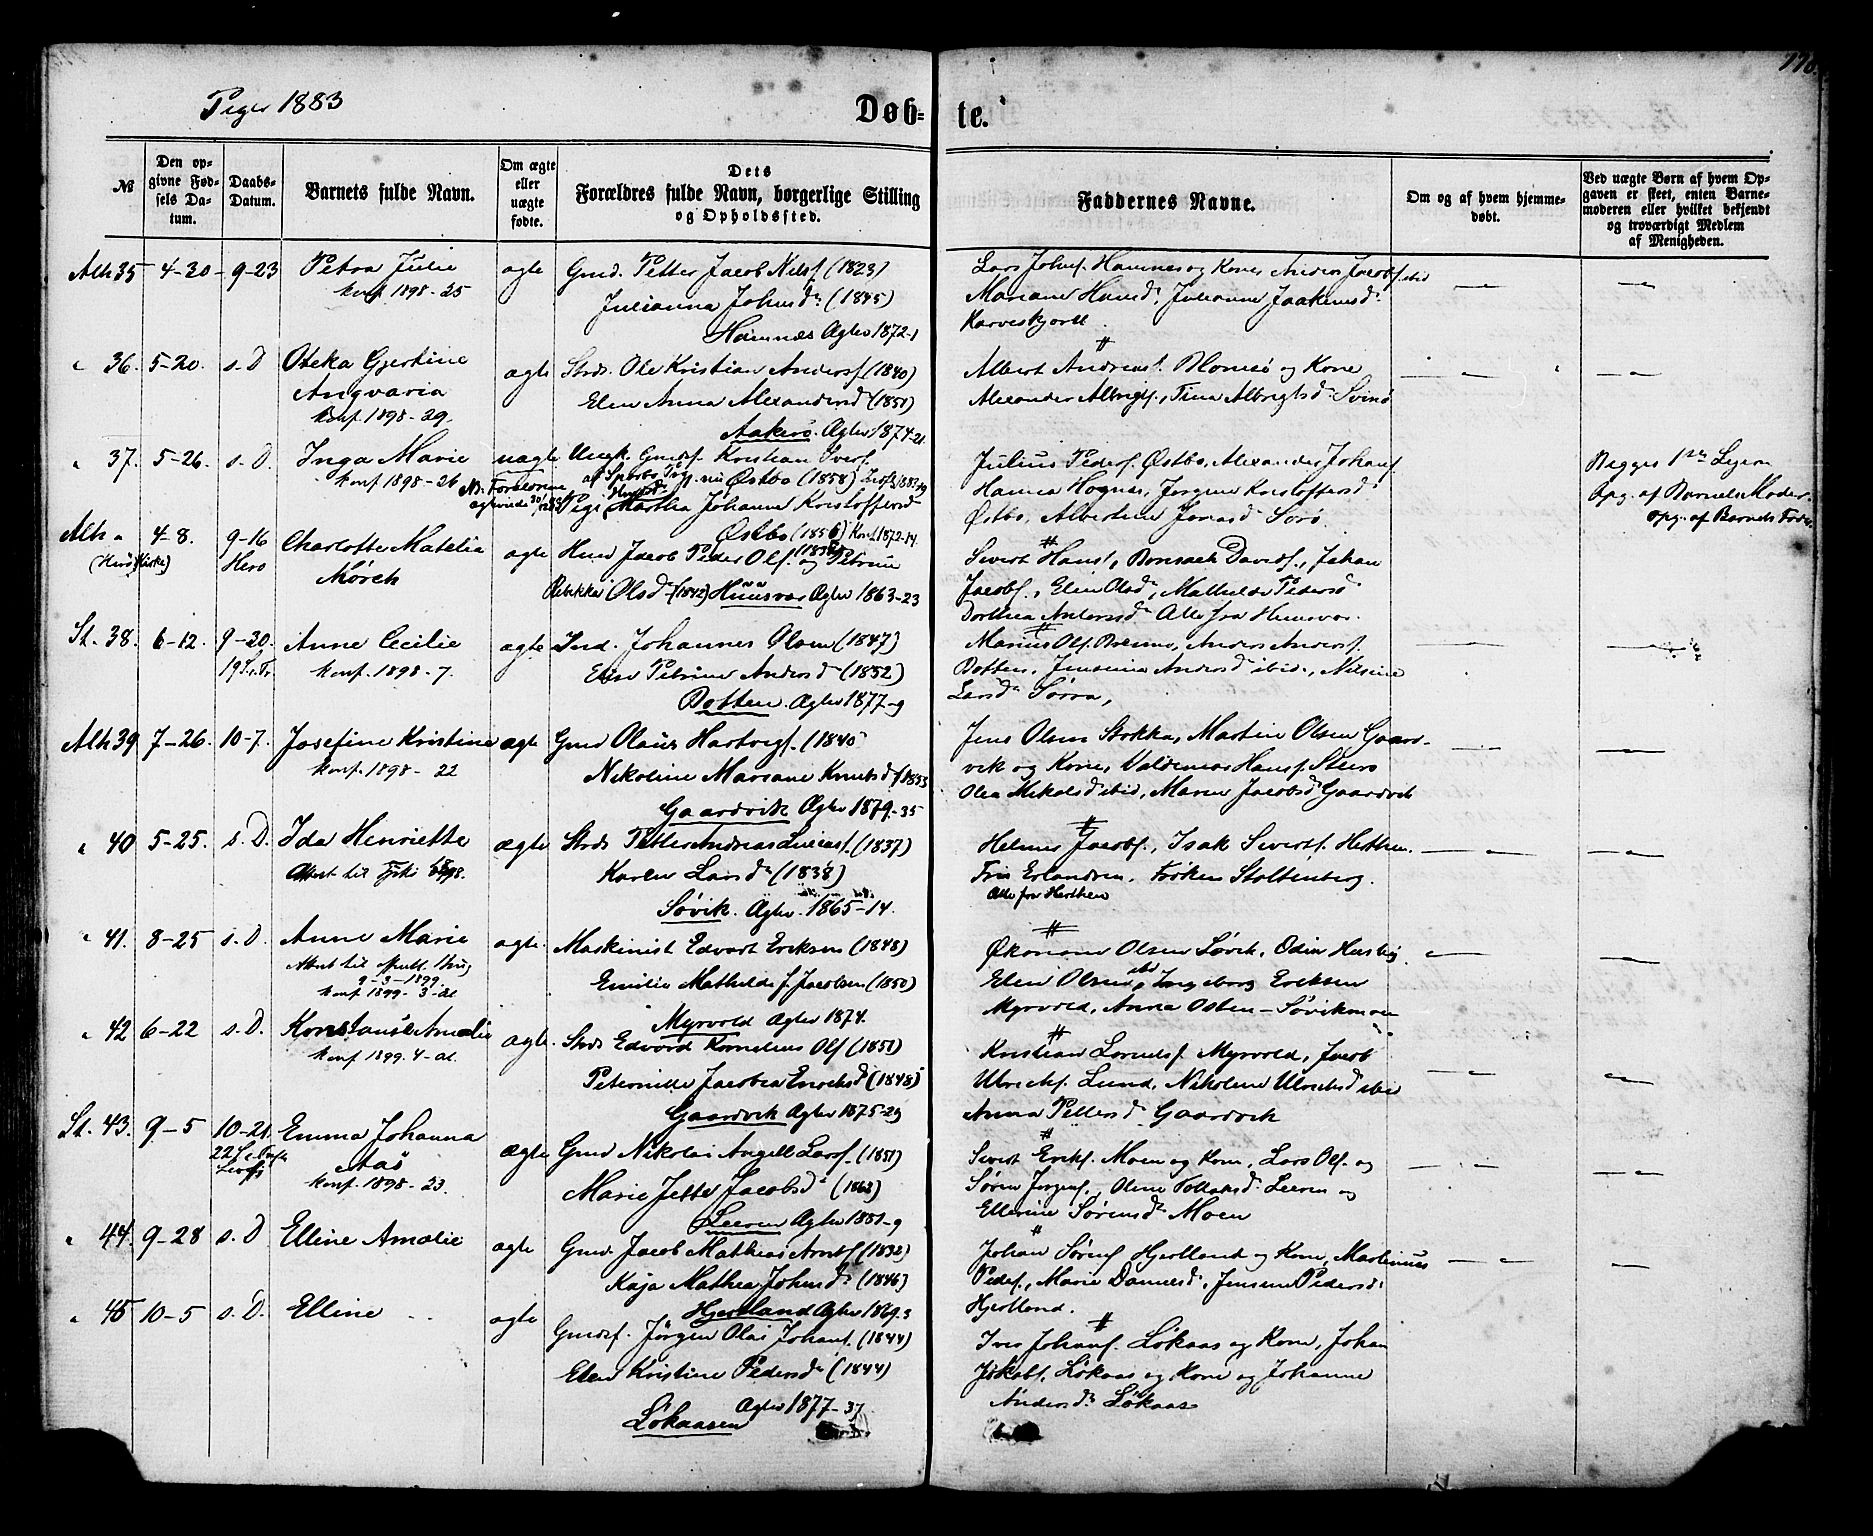 Piger 1883
Døb-te.
№
Den op-
givne Fød-
sels Da-
tum.
Daabs-
Datum.
Barnets fulde Navn.
Om ægte
eller
uægte
fødte.
Dets
Forældres fulde Navn, borgerlige Stilling
og Opholdssted.
Faddernes Navne.
Om og af hvem hjemme-
døbt.
Ved uægte Børn af hvem Op-
gaven er skeet, enten Barne-
moderen eller hvilket bekjendt
og troværdigt Medlem
af Menigheden.
Alh 35 4-20 9-23 Petra Julie
Konf. 1898-25
ægte
Gmd. Petter Jacob Nilsf. (1823)
Julianna Johnsdr (1845)
Hamnæs Ægtev 1872-1
Lars Johnf. Hamnes og Kone, Anders Jacobf. ibid
Mariane Hansdr, Julianne Joakimsdr
36. 5-20. s. D Oteka Gjertine
Angvaria
Konf. 1898-29.
ægte
Strds. Ole Kristian Andersf. (1840)
Elen Anna Alexandersdr (1851)
Aakerø. Ægtev 1874-21
Albert Andreasf. Blomsø og Kone
Alexander Albrigtsf., Trina Albrigtsdr Svinø
37. 5-26. s. D. Inga Marie
Konf 1898-26
uægte
Ungk. Gmdsf. Kristian Iversf.
Østbø (1858)
Pige Martha Johanne Kristoffersdr
Østbø (1856) Konf. 1872-14.
Julius Pedersf. Østbø, Alexander Johanf.
Hamea Hognæs, Jørgine Kristoffersdr
Østbø, Albertine Jonasdr Sørø.
Begges 1ste Leierm
Opg. af Barnets Moder.
opg. af Barnets Fader
Alh " 4-8. 9-16
(Herø Kirke) Herø
Charlotte Matelia
Mørch
ægte
Hmd Jacob Peder Olf. (1836) og Petrine
Rebekka Olsdr (1842) Huusvær Ægtev 1863-23
Sivert Hansf., Bonsach Davidf., Johan
Jacobf., Elen Olsdr, Mathilde Pedersdr
Dorthea Andersdr Alle fra Huusvær.
St. 38. 6-12. 9-30. Anne Cecilie
19 S. e. Tr. Konf. 1898-7.
ægte
Ind. Johannes Olsen (1847)
Elise Petrine Andersdr (1852)
Botten. Ægtev 1877-9
Marius Olf. Breimo, Anders Andersf.
Botten, Jensine Andersdr ibid., Nilsine
Larsdr Sørra,
Alh 39 7-26. 10-7. Josefine Kristine
Konf. 1898-22
ægte
Gmd Olaus Hartvigf. (1840)
Nikoline Mariane Knutsdr (1853)
Gaardvik Ægtev 1879-35
Jens Olsen Stokka, Martin Olsen Gaard-
vik og Kone, Valdemar Hansf. Sturo
Olea Mikalsdr ibid, Maren Jacobsdr Gaardvik
40 5-25. s. D. Ida Henriette
ægte
Strds Petter Andreas Liviasf. (1837)
Karen Larsdr (1838)
Søvik. Ægtev. 1865-14.
Helmer Jacobf., Isak Sivertsf. Hesthen.
Fru Erlandsen, Frøken Stoltenberg.
Alle fra Hesthen
41. 8-25 s. D. Anne Marie
9-3-1899
Konf 1899-3-al
ægte.
Maskinist Edvart Eriksen (1848)
Emilie Mathilde f. Jacobsen (1850)
Myrvold Ægtev 1874.
Økonom Olsen Søvik, Odin Husby
Elen Olsen ibd, Ingeborg Eriksen
Myrvold, Anna Osten-Søvikmoe
42 6-22 s. D. Konstanse Amalie
Konf. 1899. 4-al.
ægte.
Strds Edvard Kornelius Olf (1851)
Peternille Jacobea Enoksdr (1848)
Gaardvik Ægtev 1875-29
Kristian Lorntsf. Myrvold, Jacob
Ulrichf. Lund, Nikoline Ulrichsdr ibid
Anna Pettersdr Gaardvik
St. 43. 9-5 10-21. Emma Johanna
Aas
Konf. 1898-23.
ægte
Gmd Nikolai Angell Larsf. (1851)
Marie Jette Jacobsdr (1863)
Leeren Ægtev 1881-9
Sivert Erikf. Moen og Kone, Lars Olf. og
Søren Jørgenf., Oline Tollaksdr Leeren og
Ellerine Sørensdr Moen
44. 9-28 s. D Elline Amalie
ægte
Gmd. Jacob Mathias Arntf. (1832)
Kaja Mathea Johnsdr (1846)
Hjertland Ægtev 1869-3
Johan Sørenf. Hjertland og Kone, Martinus
Pedersf., Marie Danielsdr, Jensine Pedersdr
Hjertland.
45 10-5 s. D. Elline
ægte
Gmdsf. Jørgen Olai Johanf. (1844)
Elen Kristine Pedersdr (1844)
Ægtev 1877-37
Løkaasen
Iver Johanf. Løkaas og Kone, Johan
Jakobf. Løkaas og Kone og Johanne
Andersdr Løkaas